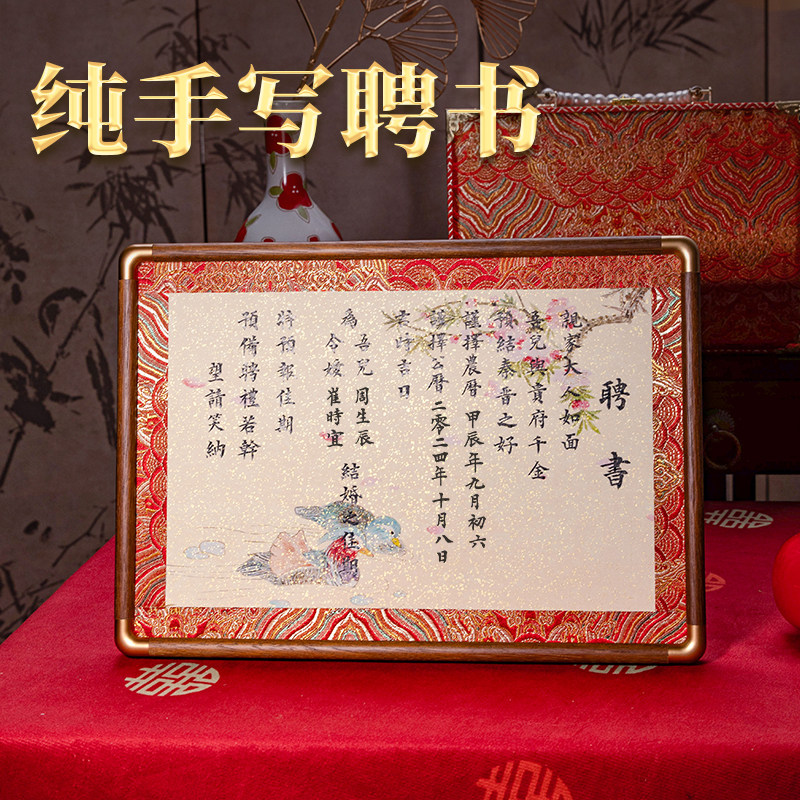 纯手写聘书
聘書
親家大人如面
吾兒與貴府千金
預結秦晉之好
謹擇農曆 甲辰年九月初六
謹擇公曆 二零二四年十月八日
良時吉日
為 吾兒 周生辰 結婚之佳期
令媛 崔時宜
將預報佳期
預備聘禮若幹
望請笑納